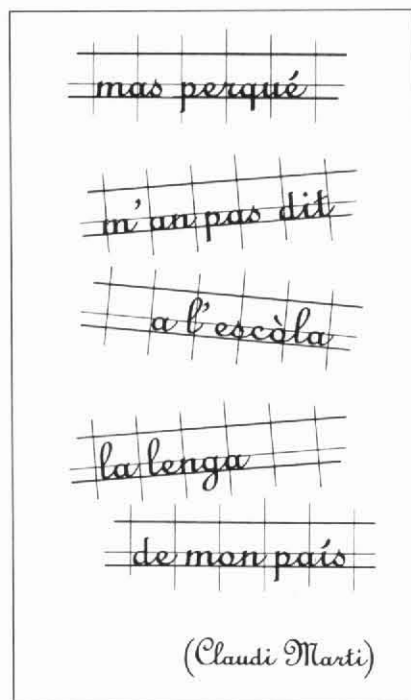 mas perqué
m'an pas dit
a l'escòla
la lenga
de mon país
(Claudi Marti)